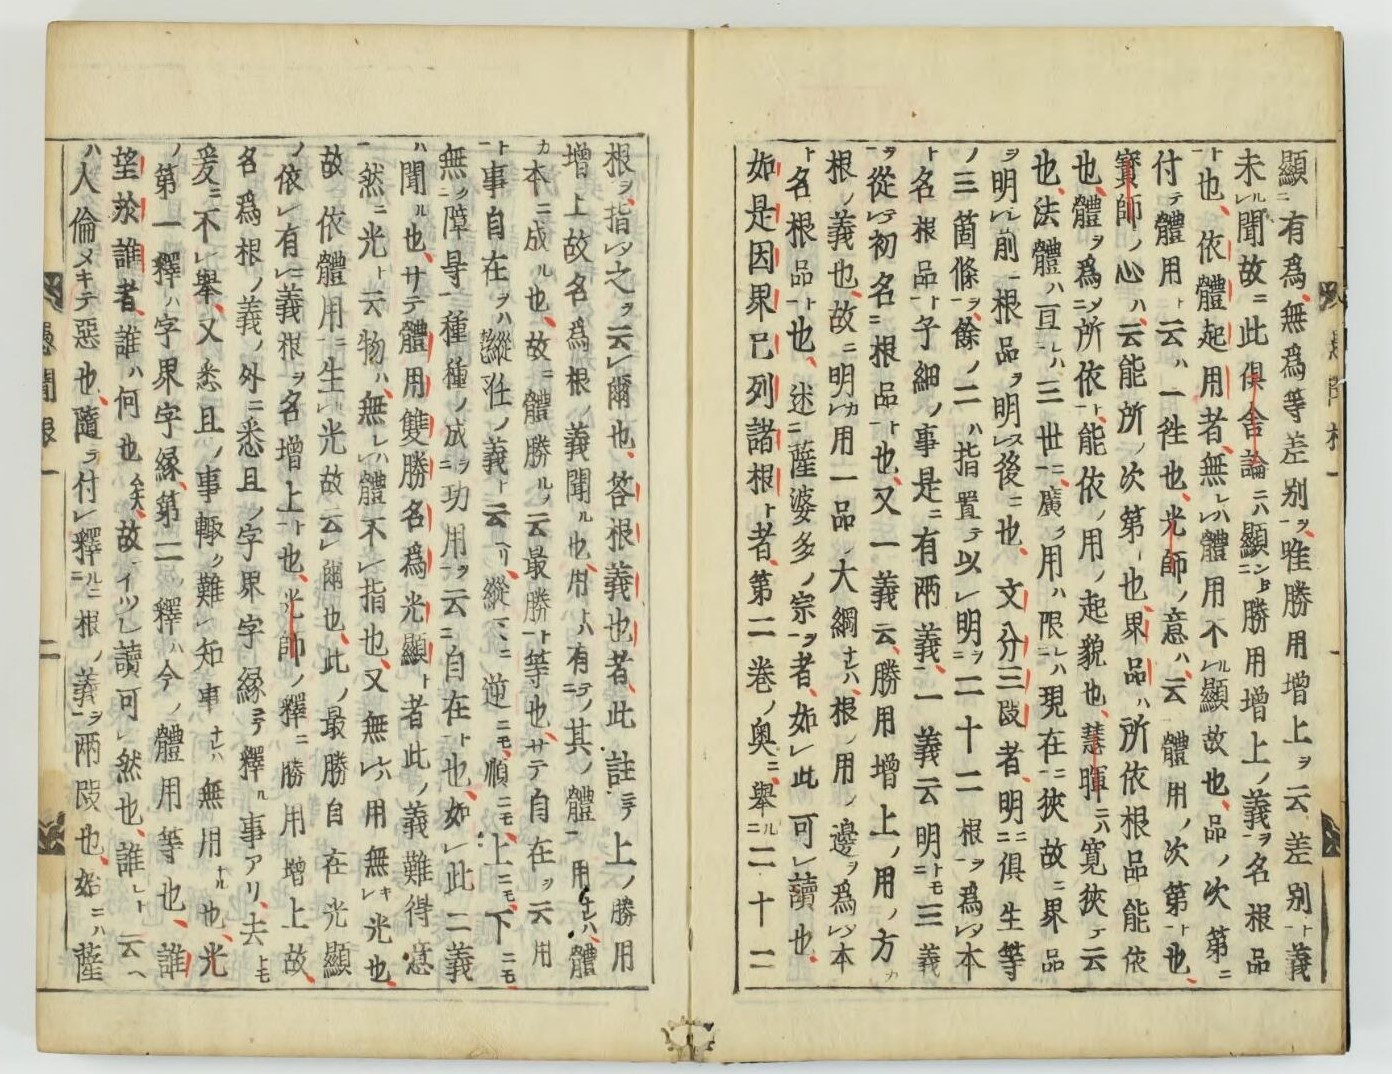 顯ニ有爲、無爲等差別ヲ、唯勝用增上ヲ云、差別ト義
未ルレ聞故ニ此俱舍論ニハ顯ント勝用增上ノ義ヲ名根品
ト也、依體起用者、無レハ體用不ルレ顯故也、品ノ次第ニ
付テ體用ト云ハ一徃也、光師ノ意ハ云體用ノ次第ト也、
寳師ノ心ハ、云能所ノ次第ト也界品ハ所依根品能依
也、體ヲ爲メニ所依ト、能依ノ用ノ起貌也、慧暉ニハ寛狹ヲ云
也、法體ハ亘レハ三世ニ、廣ク用ハ限レハ現在ニ狹故ニ界品
ヲ明レ前ニ根品ヲ明レス後ニ也、 文分三段者、明ニ俱生等
ノ三箇條ヲ、餘ノ二ハ指置テ以レ明ヲ二十二根ヲ爲レ本
ト名根品ト子細ノ事是ニ有兩義、一義云明トモ三義
ヲ從レ初名ニ根品ト也、又一義云、勝用增上ノ用ノ方カ
根ノ義也、故ニ明レカ用一品ノ大綱ナレハ、根ノ用ノ邊ヲ爲レ本
ト名根品ト也、迷ニ薩婆多ノ宗ヲ者、如レ此可レ讀也、
如是因界已列諸根ト者、第二卷ノ奥ニ、舉ルニ二十二
根ヲ、指レ之ヲ云レ爾也、答根義也者、此註ニテ上ノ勝用
增上故名爲根ノ義聞ル也、用トハ有テ其ノ體一用ナレハ、體
カ本ニ成ル也、故ニ體勝ルノ云最勝ト等也、サテ自在ヲ云用
ト事自在ヲハ縱任ノ義ト云、縱ニ逆ニモ、順ニモ、上ニモ、下ニモ、
無クニ障导一種種ノ成ヲニ功用ヲ云ニ自在ト也、如レ此二義
ハ聞ル也、サテ體用雙勝名爲光顯ト者此ノ義難得意
然ニ光ト云物ハ、無レハ體不レ指也、又無レハ用無レキ光也、
故依體用ニ生レ光故云レ爾也、此ノ最勝自在光顯
ノ依レ有レ義根ヲ名增上ト也、光師ノ釋ニ勝用增上故、
名爲根ノ義ノ外ニ悉且ノ字界字緣ヲ釋ル事アリ、去トモ
爰ニ不レ舉、又悉且ノ事輙ク難レ知事ナレハ無用ナル也、光
ノ第一釋ハ字界字緣第二ノ釋ハ今ノ體用等也、誰
望於誰者、誰ハ何也、故イツレ讀可レ然也、誰レト云ヘ
ハ人倫メキテ惡也、隨テ付レ釋ルニ根ノ義ヲ兩段也、如ニハ薩